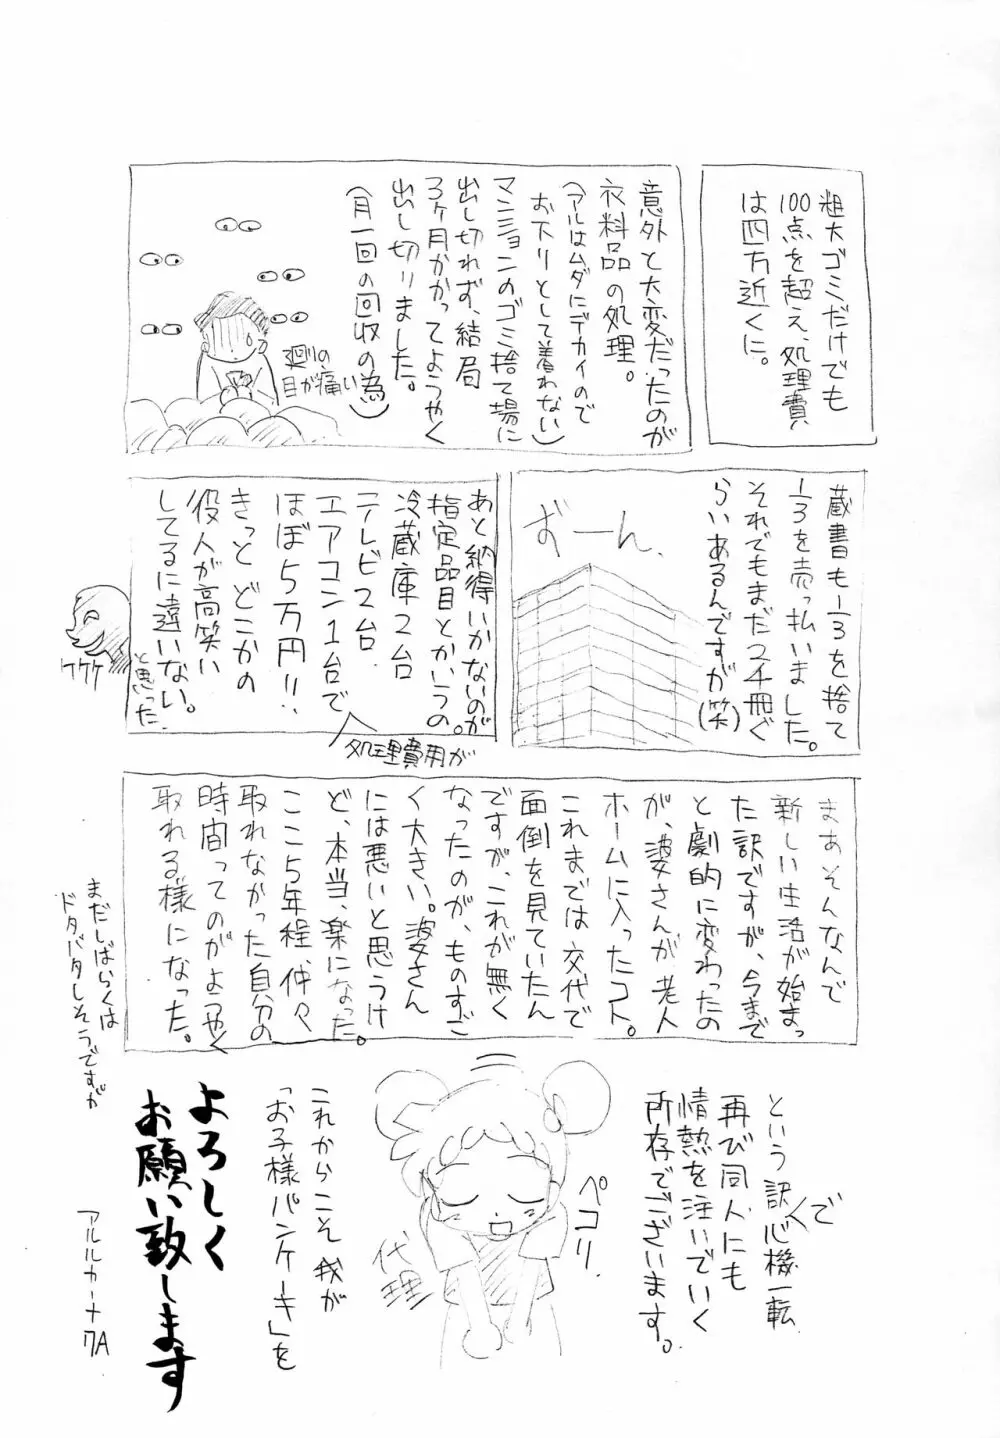 粗大ゴミだけでも
100点を超え、処理費
は四万近くに。
意外と大変だったのが
衣料品の処理。
(アルはムダにデカイので
お下りとして着れない)
マンションのゴミ捨て場に
出し切れず、結局
3ヶ月かかってようやく
出し切りました。
(月一回の回収の為)
廻りの
目が痛い
蔵書も1/3を捨て
1/3を売っ払いました。
それでもまだ2千冊ぐ
らいあるんですが(笑)
ずーん.
あと納得いかないのが
指定品目とかいうの。
冷蔵庫2台
テレビ2台.
エアコン1台で
処理費用が
ほぼ5万円!!
きっとどこかの
役人が高笑い
してるに違いない。
と思った.
ケケケ
まあそんなんで
新しい生活が始まっ
た訳ですが、今まで
と劇的に変わったの
が、婆さんが老人
ホームに入ったコト。
これまでは交代で
面倒を見ていたん
ですが、これが無く
なったのが、ものすご
く大きい。婆さん
には悪いと思うけ
ど、本当、楽になった。
ここ5年程、仲々
取れなかった自分の
時間ってのがようやく
取れる様になった。
まだしばらくは
ドタバタしそうですが
という訳で
心機一転
再び同人にも
情熱を注いでいく
所存でございます。
ペコリ.
代理
これからこそ我が
「お子様パンケーキ」を
よろしく
お願い致します
アルルカーナ7A